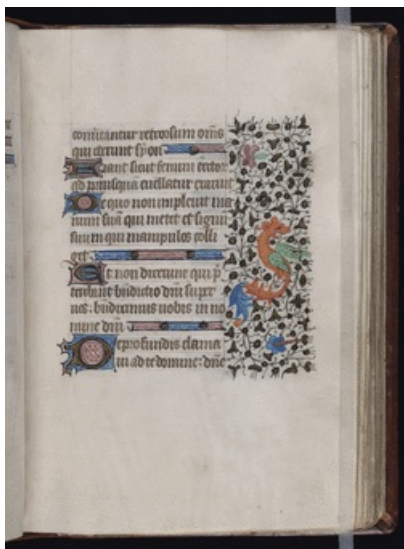 convertantur retrorsum om̄s
qui oderunt syon
Fiant sicut fenum tector
qd̄ priusquā evellatur exaruit
De quo non implevit ma
num suā qui metet et sinum
suum qui manipulos colli
get
Et non dixerunt qui p̄
teribant b̄ndictio dn̄i super
vos: b̄ndiximus vobis in no
mine dn̄i
De profundis clama
vi ad te domine: dn̄e